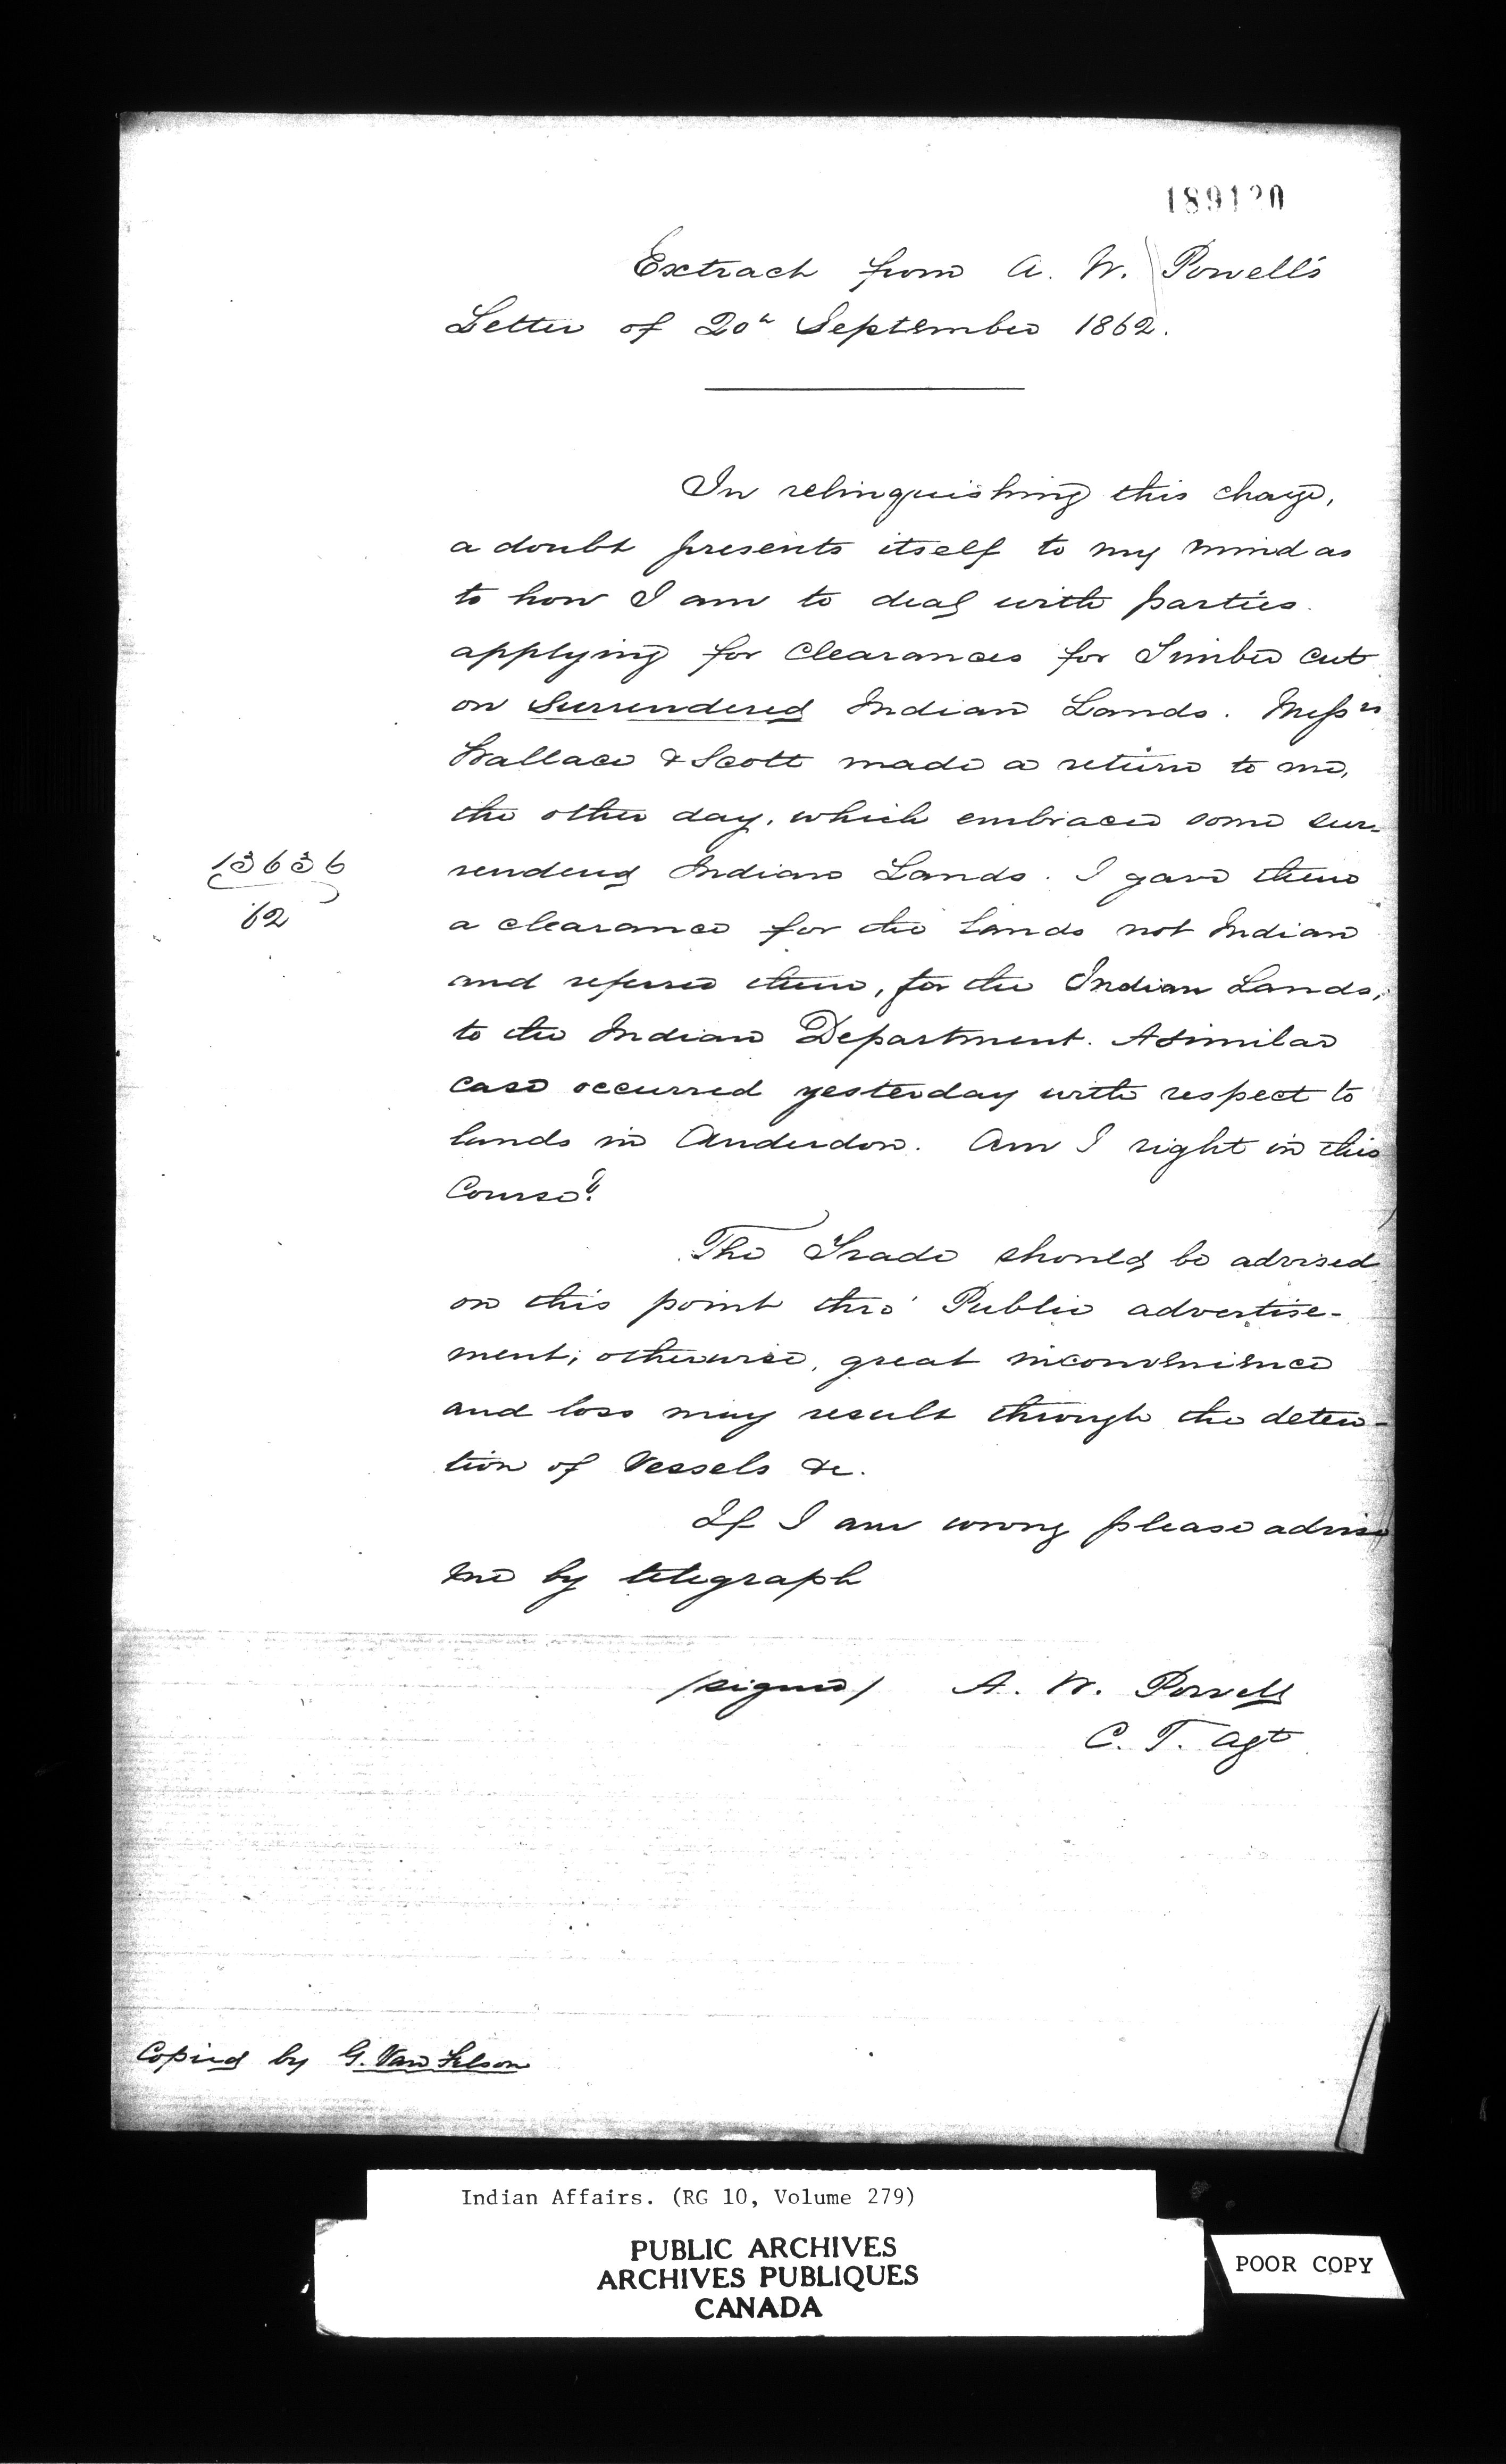 189120
Extract from A. W. Powell's
Letter of 20th September 1862.
In relinquishing this charge,
a doubt presents itself to my mind as
to how I am to deal with parties
applying for Clearances for Timber cut
on Surrendered Indian Lands. Messrs
Wallace & Scott made a return to me,
the other day, which embraced some sur-
rendered Indian Lands. I gave them
13636
62
a clearance for the Lands not Indian
and referred them, for the Indian Lands,
to the Indian Department. A similar
case occurred yesterday with respect to
lands in Anderdon. Am I right in this
Course?
The Trade should be advised
on this point thro' Public advertise-
ment; otherwise, great inconvenience
and loss may result through the deten-
tion of Vessels &c.
If I am wrong please advise
me by telegraph
/signed/ A. W. Powell
C. T. Agt
Copied by G. Van Felson
Indian Affairs. (RG 10, Volume 279)
PUBLIC ARCHIVES
ARCHIVES PUBLIQUES
CANADA
POOR COPY